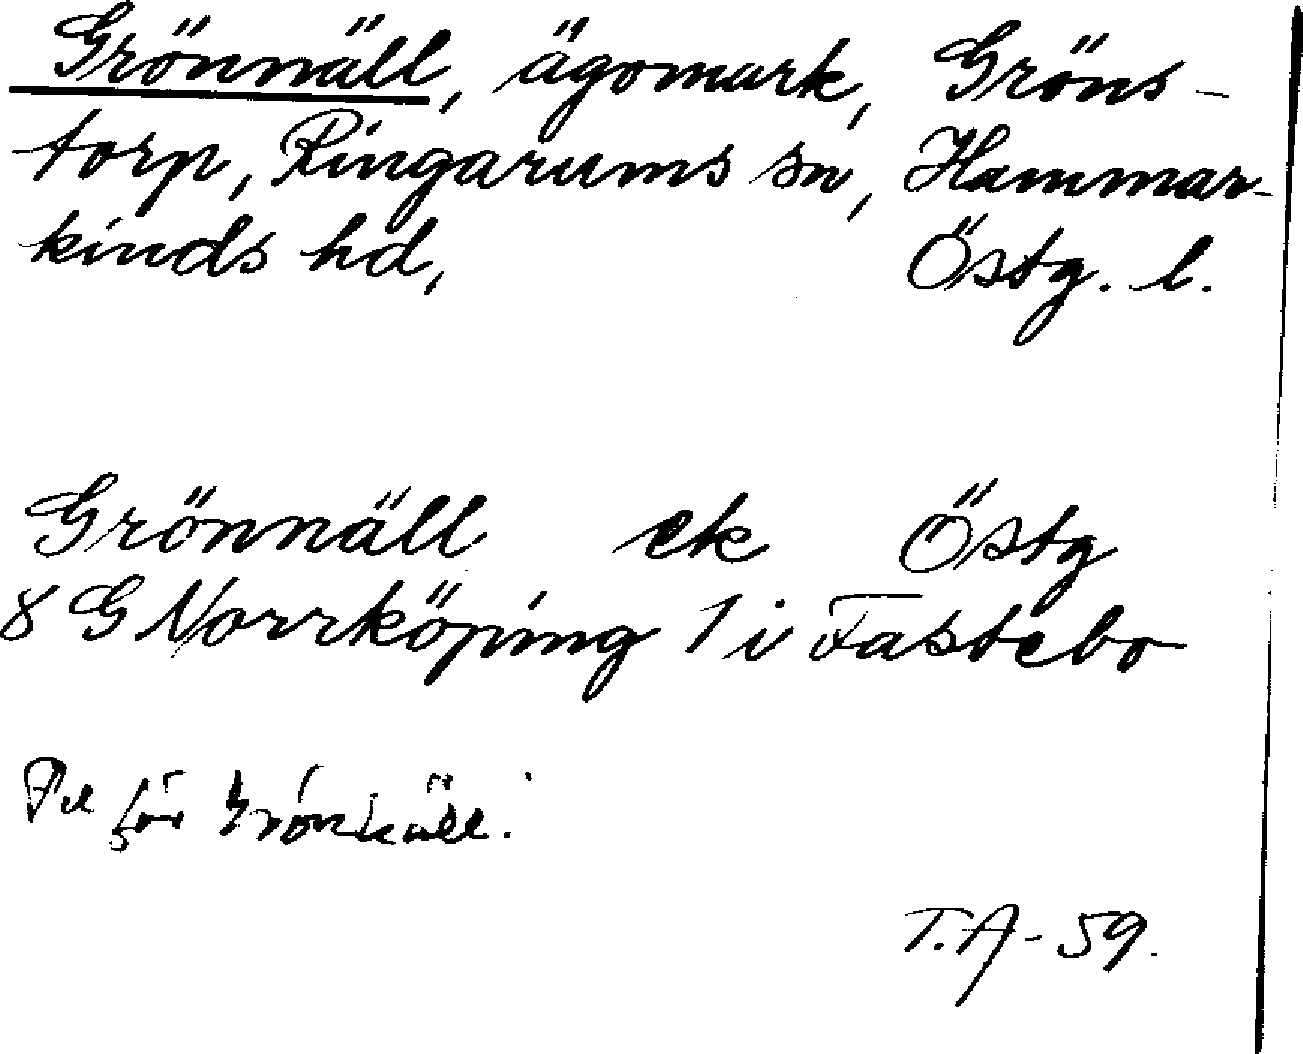 Grönnäll, ägomark, Gröns-
torp, Ringarums sn, Hammar-
kinds hd, Östg. l.
Grönnäll ek Östg
8 G Norrköping 1 i Fastebo
Fel för Grönkäll.
T.A-59.